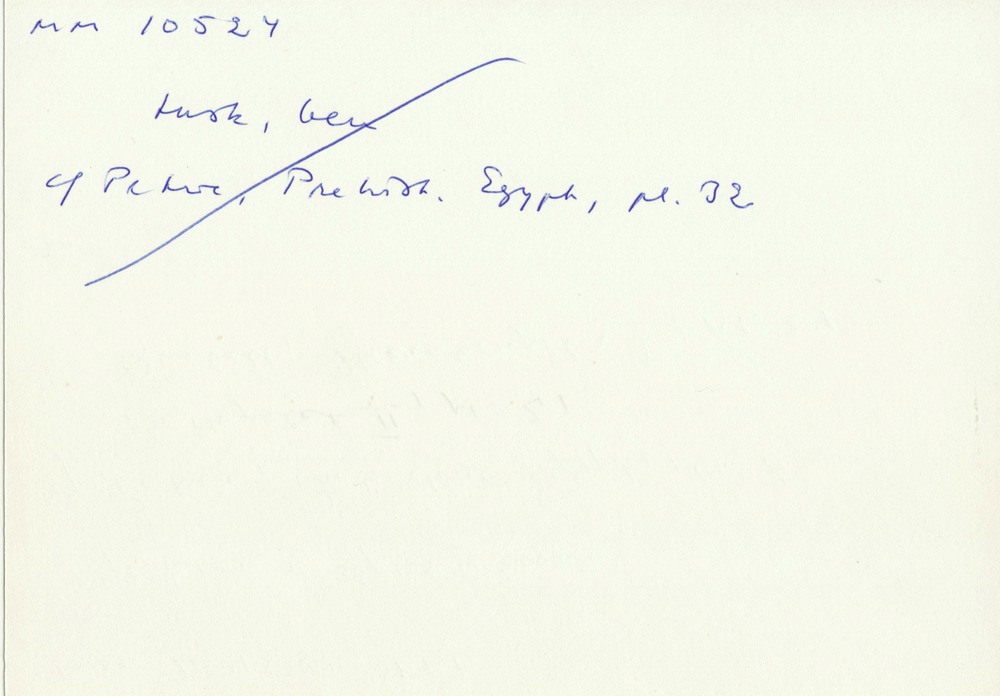 MM 10524
tusk, ben
cf Petrie, Prehist. Egypt, pl. 32